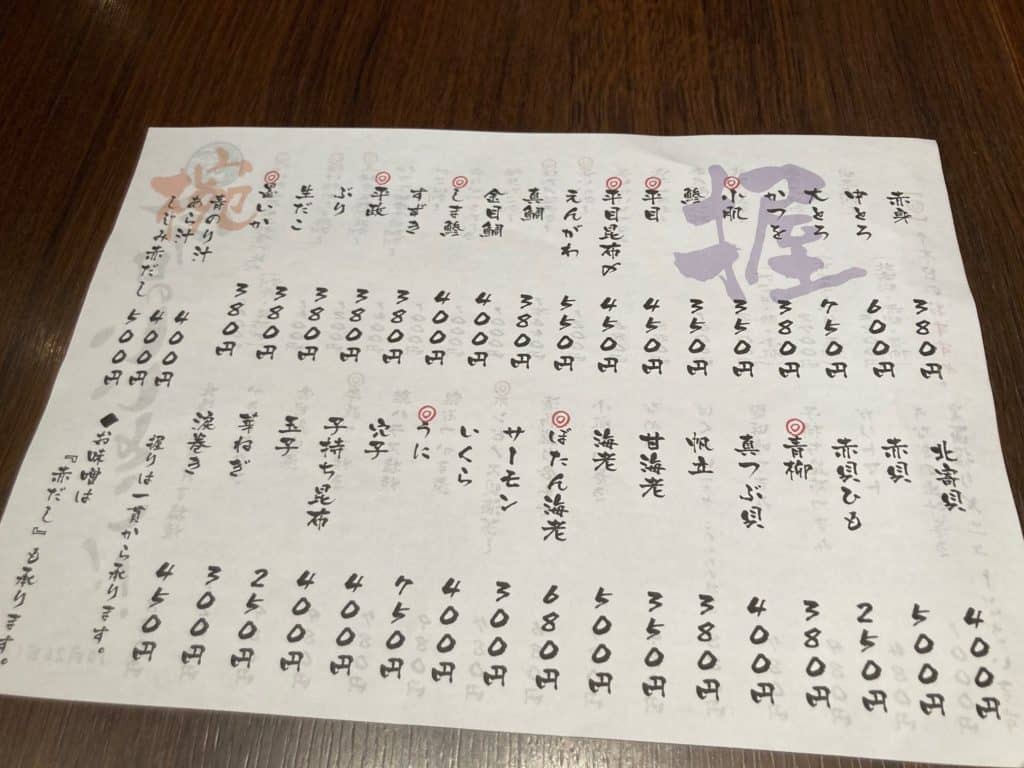 握
赤身 380円
中とろ 600円
大とろ 750円
かつを 380円
◎小肌 350円
鯵 350円
◎平目 450円
◎平目昆布〆 450円
えんがわ 550円
真鯛 380円
金目鯛 400円
◎しま鯵 400円
すずき 380円
◎平政 380円
ぶり 380円
生だこ 380円
◎墨いか 380円
北寄貝 400円
赤貝 500円
赤貝ひも 250円
◎青柳 380円
真つぶ貝 400円
帆立 380円
甘海老 350円
海老 500円
◎ぼたん海老 680円
サーモン 300円
いくら 400円
◎うに 750円
穴子 400円
子持ち昆布 400円
玉子 250円
芽ねぎ 300円
涙巻き 450円
握りは一貫から承ります。
椀
青のり汁 400円
あら汁 400円
しじみ赤だし 500円
◆お味噌は
『赤だし』も承ります。